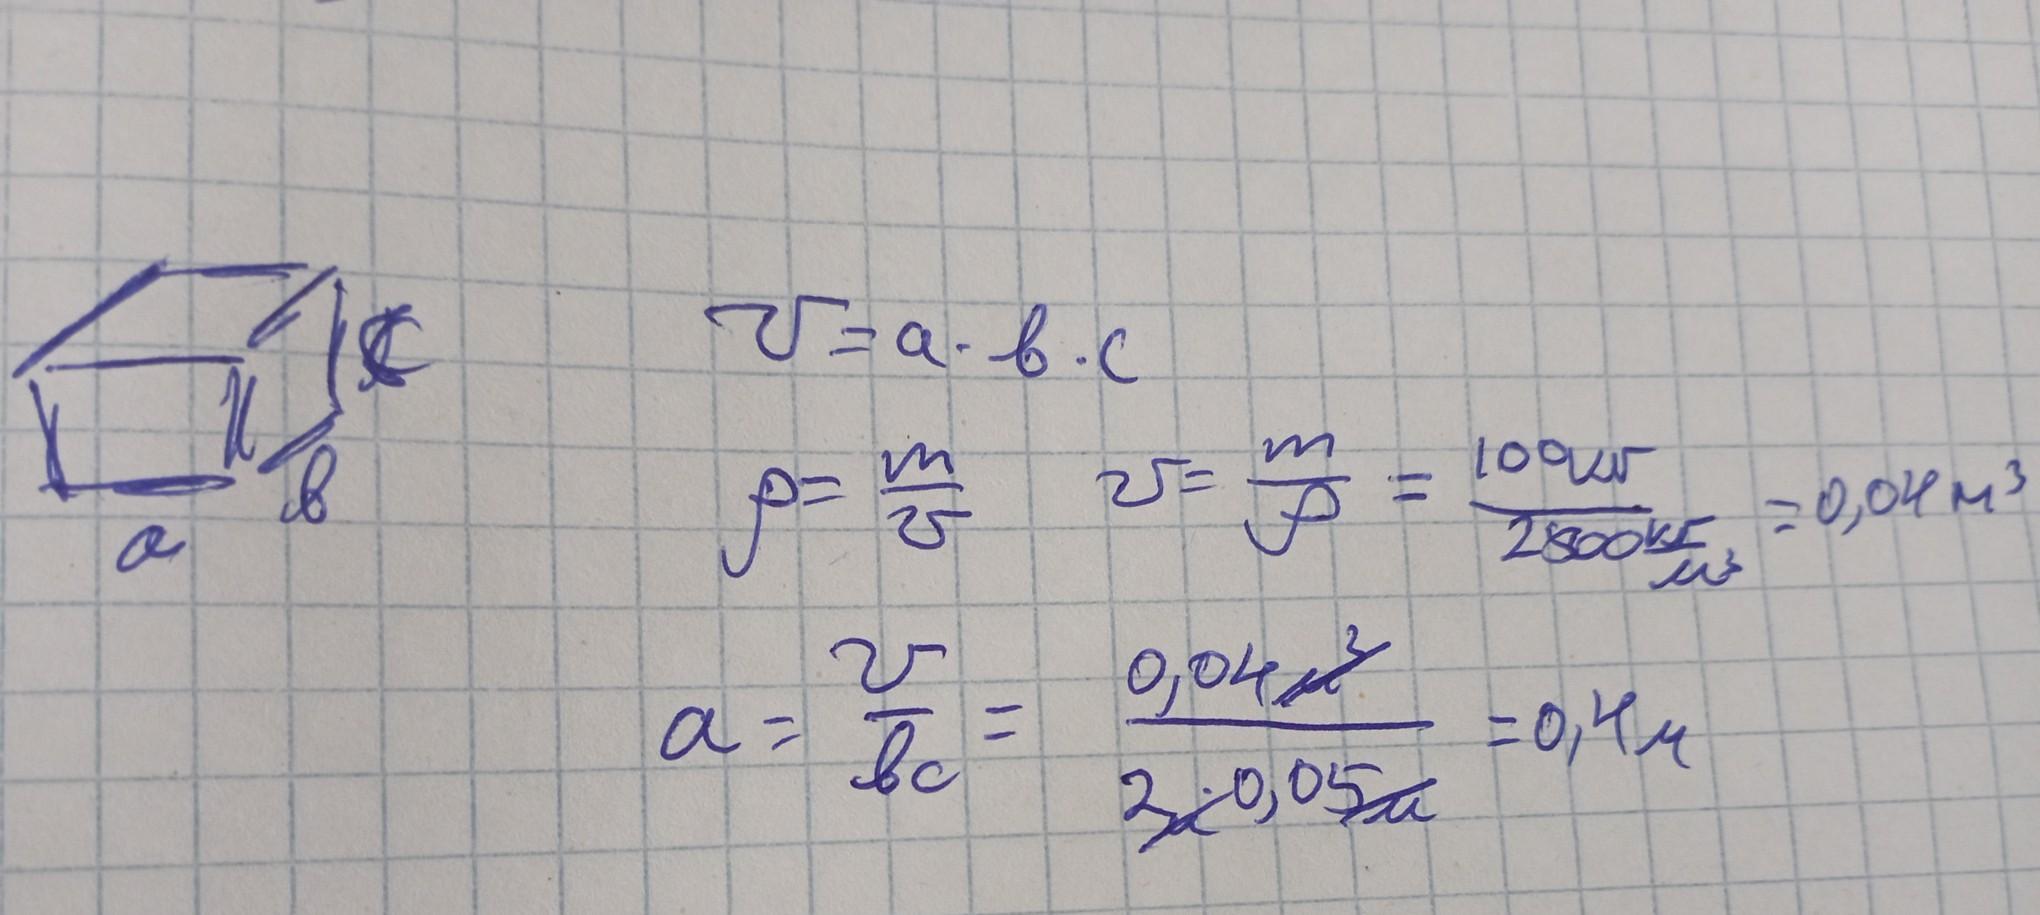 V = a · b · c
c
ρ = m/V V = m/ρ = 100кг/2800кг/м³ = 0,04 м³
b
a
a = V/bc = 0,04 м³/2м · 0,05м = 0,4 м